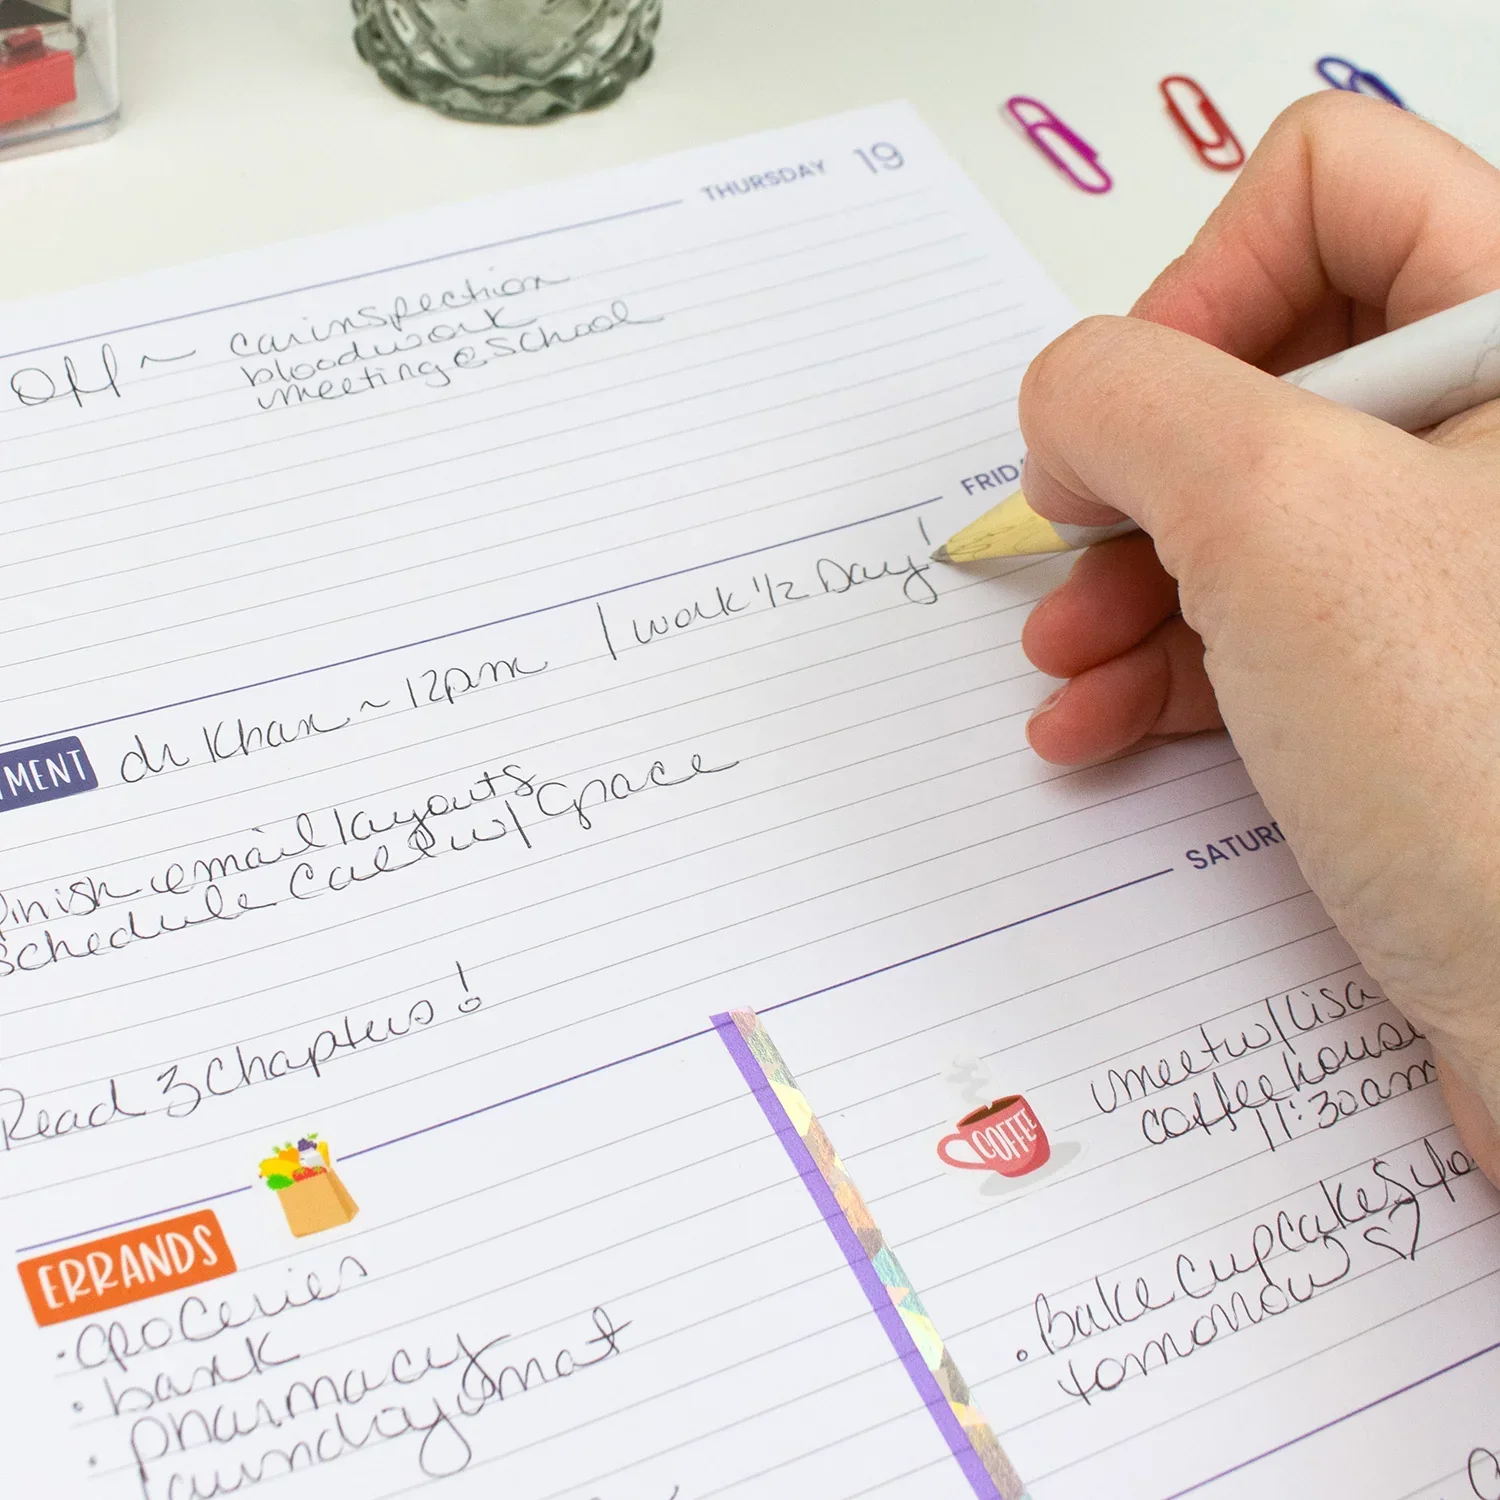 THURSDAY 19
Off ~ car inspection
bloodwork
meeting @ School
FRID
| work 1/2 Day!
MENT dr Khan ~ 12pm
finish email layouts
schedule call w/ Grace
Read 3 Chapters!
SATUR
ERRANDS
• groceries
• bank
• pharmacy
laundrymat
COFFEE
meet w/ Lisa
coffee house
11:30am
• Bake Cupcakes fo
tomorrow ♡